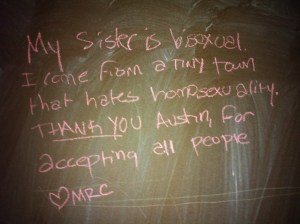 My Sister is bisexual.
I come from a TINY town
that hates homosexuality.
THANK YOU Austin, for
accepting all people
♡MRC